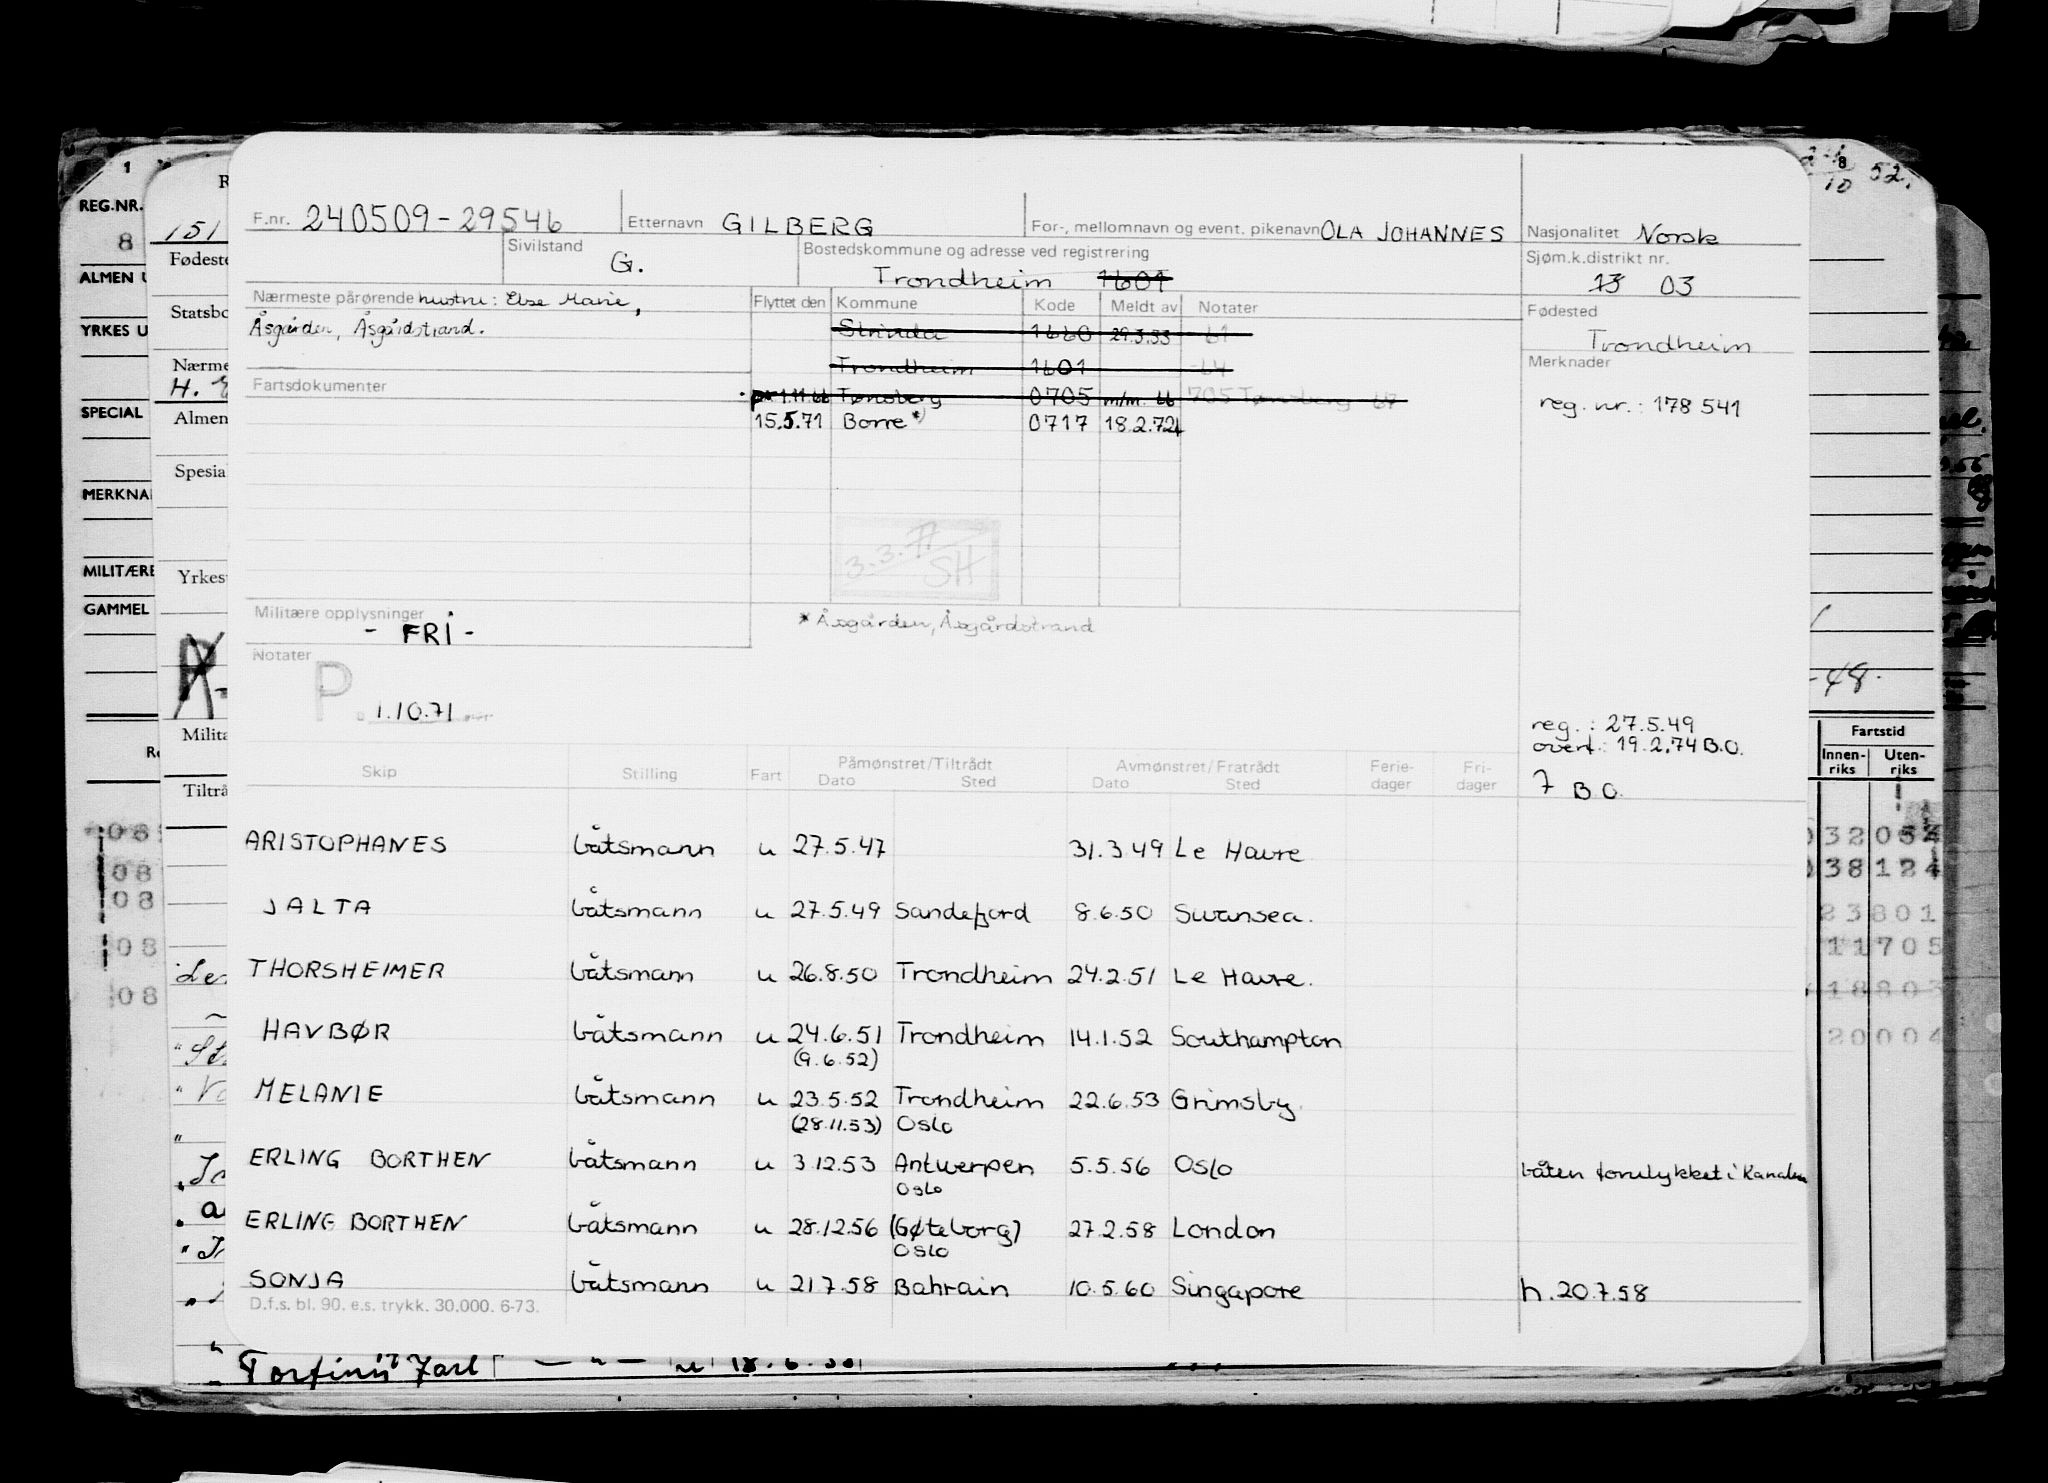 F.nr. 240509-29546 Etternavn GILBERG For-, mellomnavn og event. pikenavn OLA JOHANNES Nasjonalitet Norsk
Sivilstand G. Bostedskommune og adresse ved registrering Sjøm.k.distrikt nr.
Trondheim 1601 13 03
Nærmeste pårørende hustru: Else Marie, Flyttet den Kommune Kode Meldt av Notater Fødested
Åsgården, Åsgårdstrand. Strinda 1660 29.3.53 -61 Trondheim
Trondheim 1601 -64 Merknader
Fartsdokumenter 1.11.66 Tønsberg 0705 m/m. 66 705 Tønsberg 67 reg. nr.: 178541
15.5.71 Borre *) 0717 18.2.74
3.3.77
SH
Militære opplysninger * Åsgården, Åsgårdstrand
- FRI -
Notater
P. 1.10.71
reg.: 27.5.49
overf.: 19.2.74 B.O.
7 B O.
Skip Stilling Fart Påmønstret/Tiltrådt Avmønstret/Fratrådt Ferie- Fri-
Dato Sted Dato Sted dager dager
ARISTOPHANES båtsmann u 27.5.47 31.3.49 Le Havre
JALTA båtsmann u 27.5.49 Sandefjord 8.6.50 Swansea.
THORSHEIMER båtsmann u 26.8.50 Trondheim 24.2.51 Le Havre.
HAVBØR båtsmann u 24.6.51 Trondheim 14.1.52 Southampton
(9.6.52)
MELANIE båtsmann u 23.5.52 Trondheim 22.6.53 Grimsby.
(28.11.53) Oslo
ERLING BORTHEN båtsmann u 3.12.53 Antwerpen 5.5.56 Oslo båten forulykket i Kanalen
Oslo
ERLING BORTHEN båtsmann u 28.12.56 (Gøteborg) 27.2.58 London
Oslo
SONJA båtsmann u 21.7.58 Bahrain 10.5.60 Singapore h. 20.7.58
D.f.s. bl. 90. e.s. trykk. 30.000. 6-73.
1
REG.NR.
8
ALMEN U
YRKES U
SPECIAL
MERKNA
MILITÆRE
GAMMEL
151
Fødeste
Statsbo
Nærme
H.
Almen
Spesia
Yrkes
Milita
Tiltrå
08
08
08
08
08
8
10 52.
-48.
Fartstid
Innen-riks Uten-riks
32054
38124
23801
11705
18803
20004
Torfinn Jarl — " — u 18.6.50